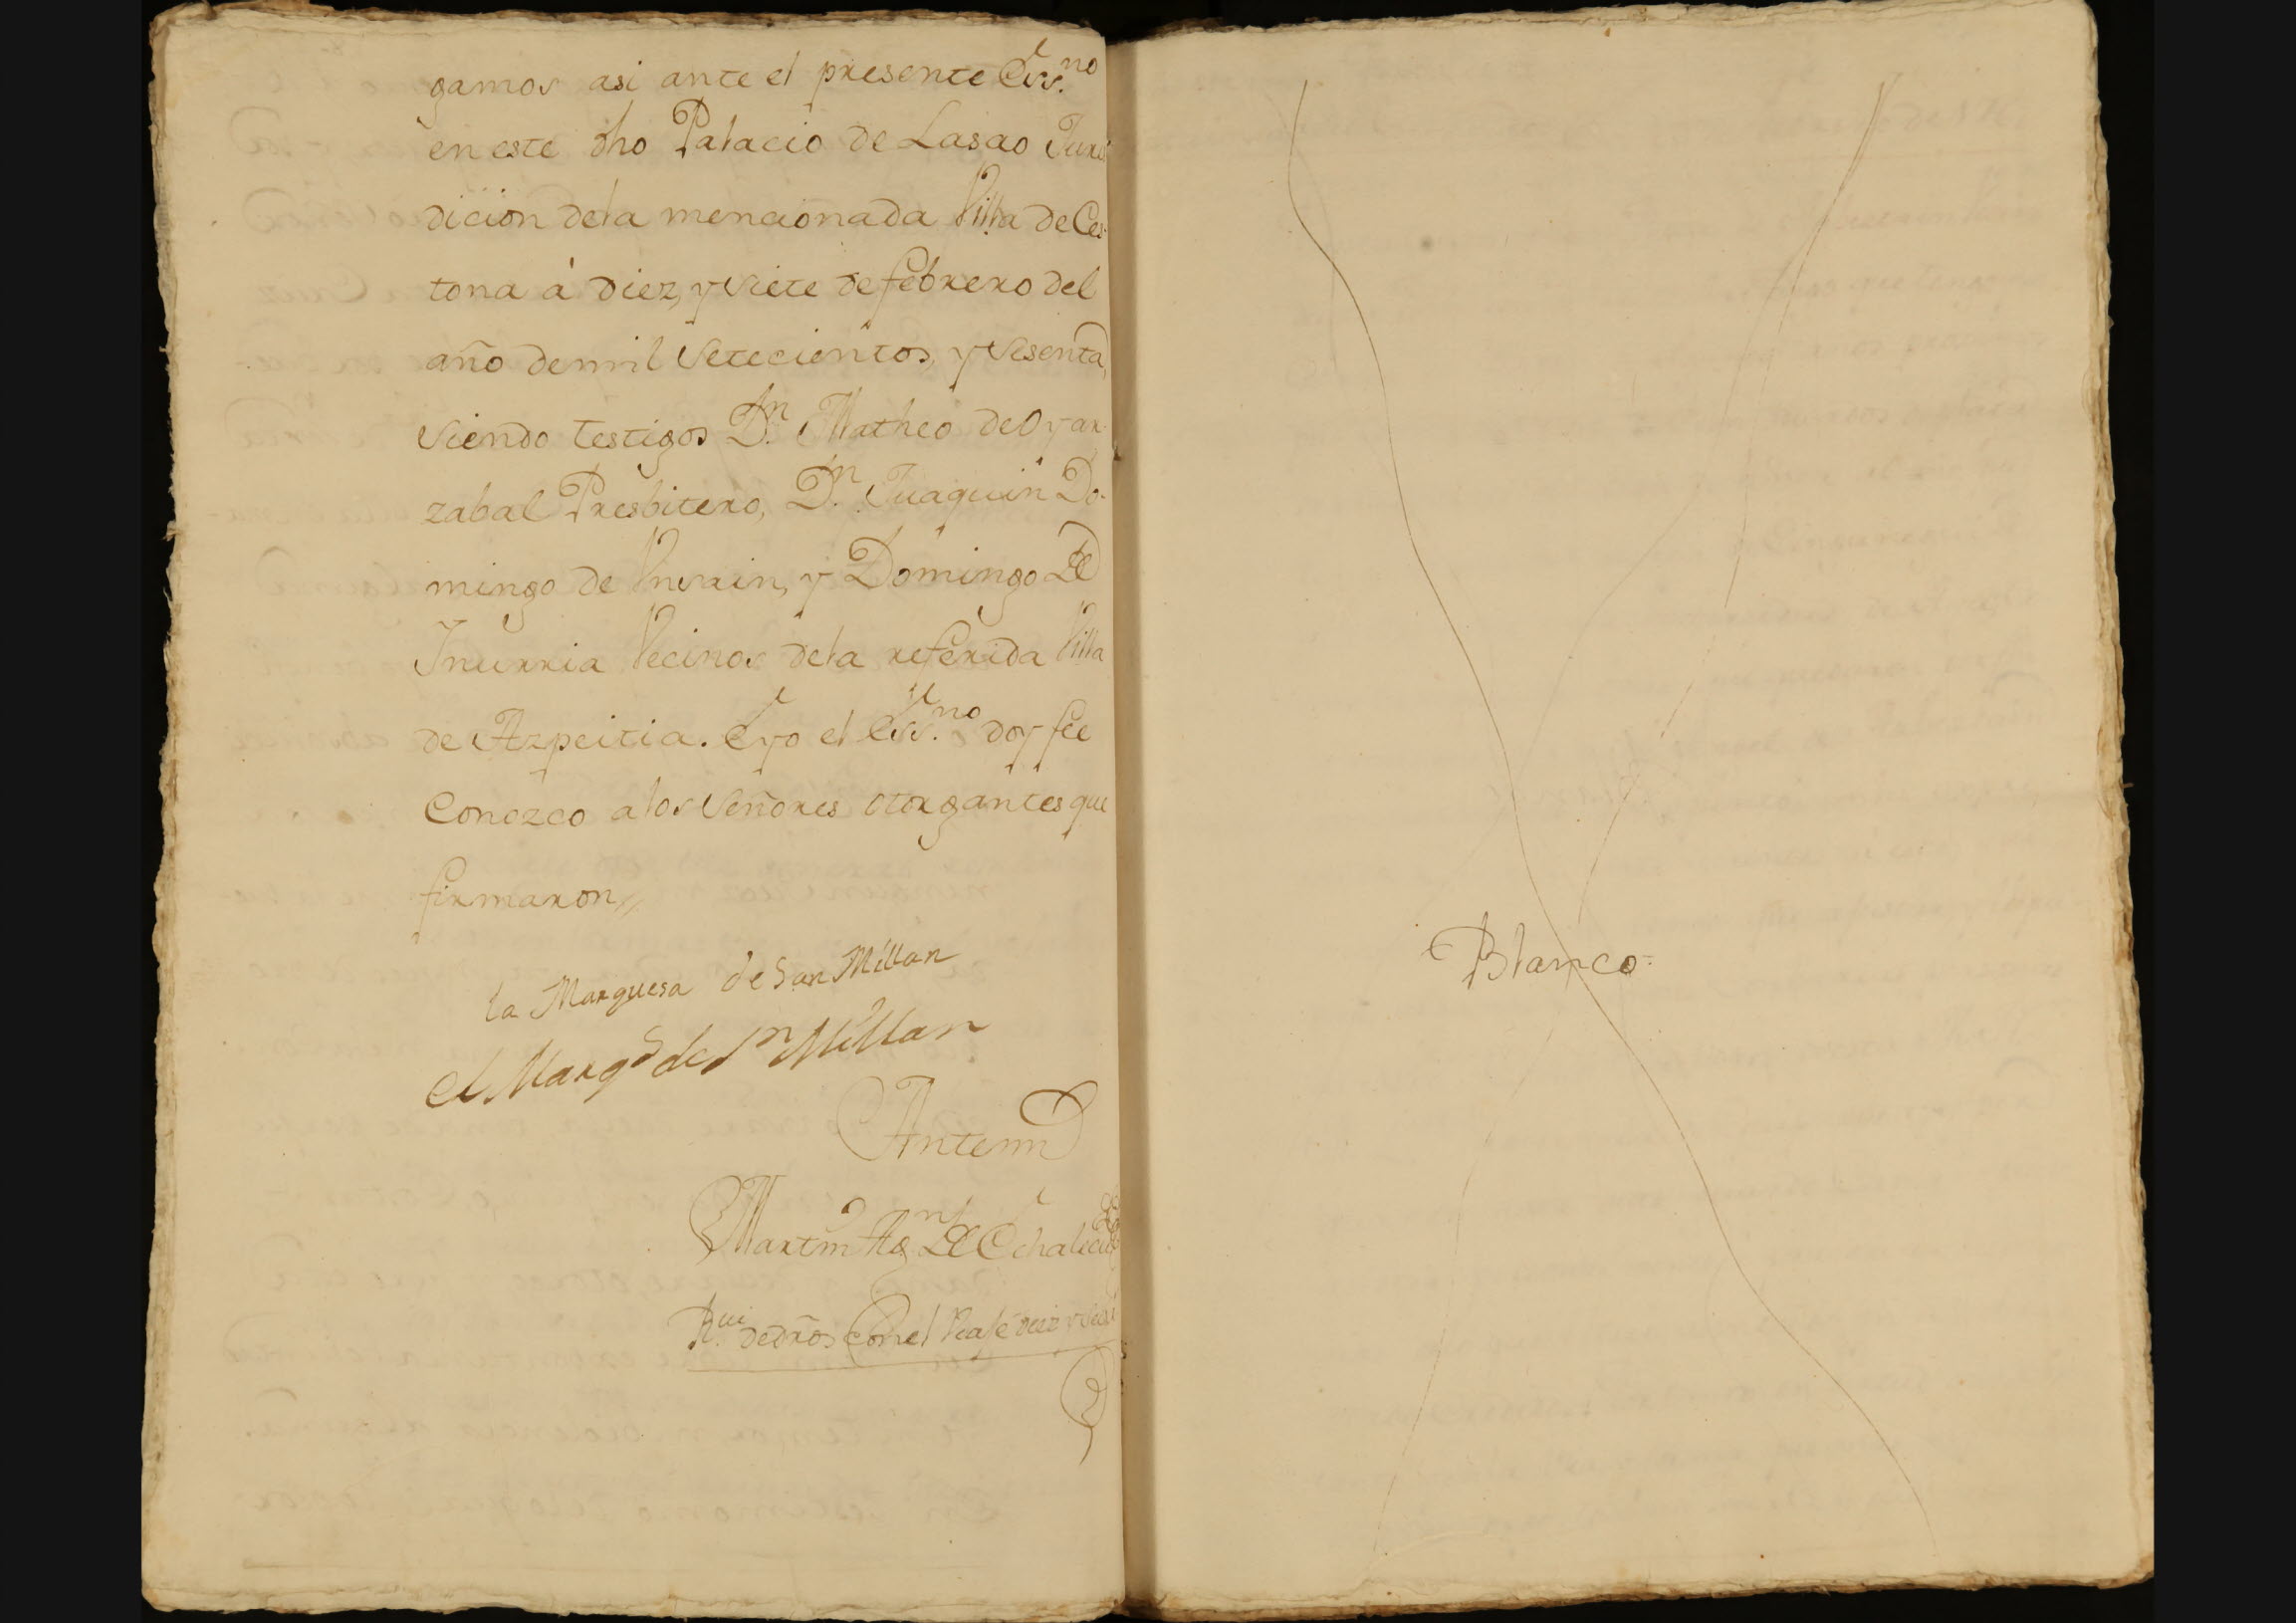 gamos asi ante el presente Ess.no
en este dho Palacio de Lasao Juris
dicion dela mencionada Villa de Ces-
tona à diez, y siete de febrero del
año demil setecientos, y sesenta,
siendo testigos D.n Matheo de Oyar-
zabal Presbitero, D.n Juaquin Do-
mingo de Unsain, y Domingo de
Inurria Vecinos dela referida Villa
de Azpeitia. Eyo el Ess.no doy fee
Conozco alos señores otorgantes que
firmaron,,
la Marquesa de San Millan
el Marqs de Sn Millan
Antemi
Martin Agn de Echalecu
R.ui dedros Con el Viaje diez y seis
Blanco